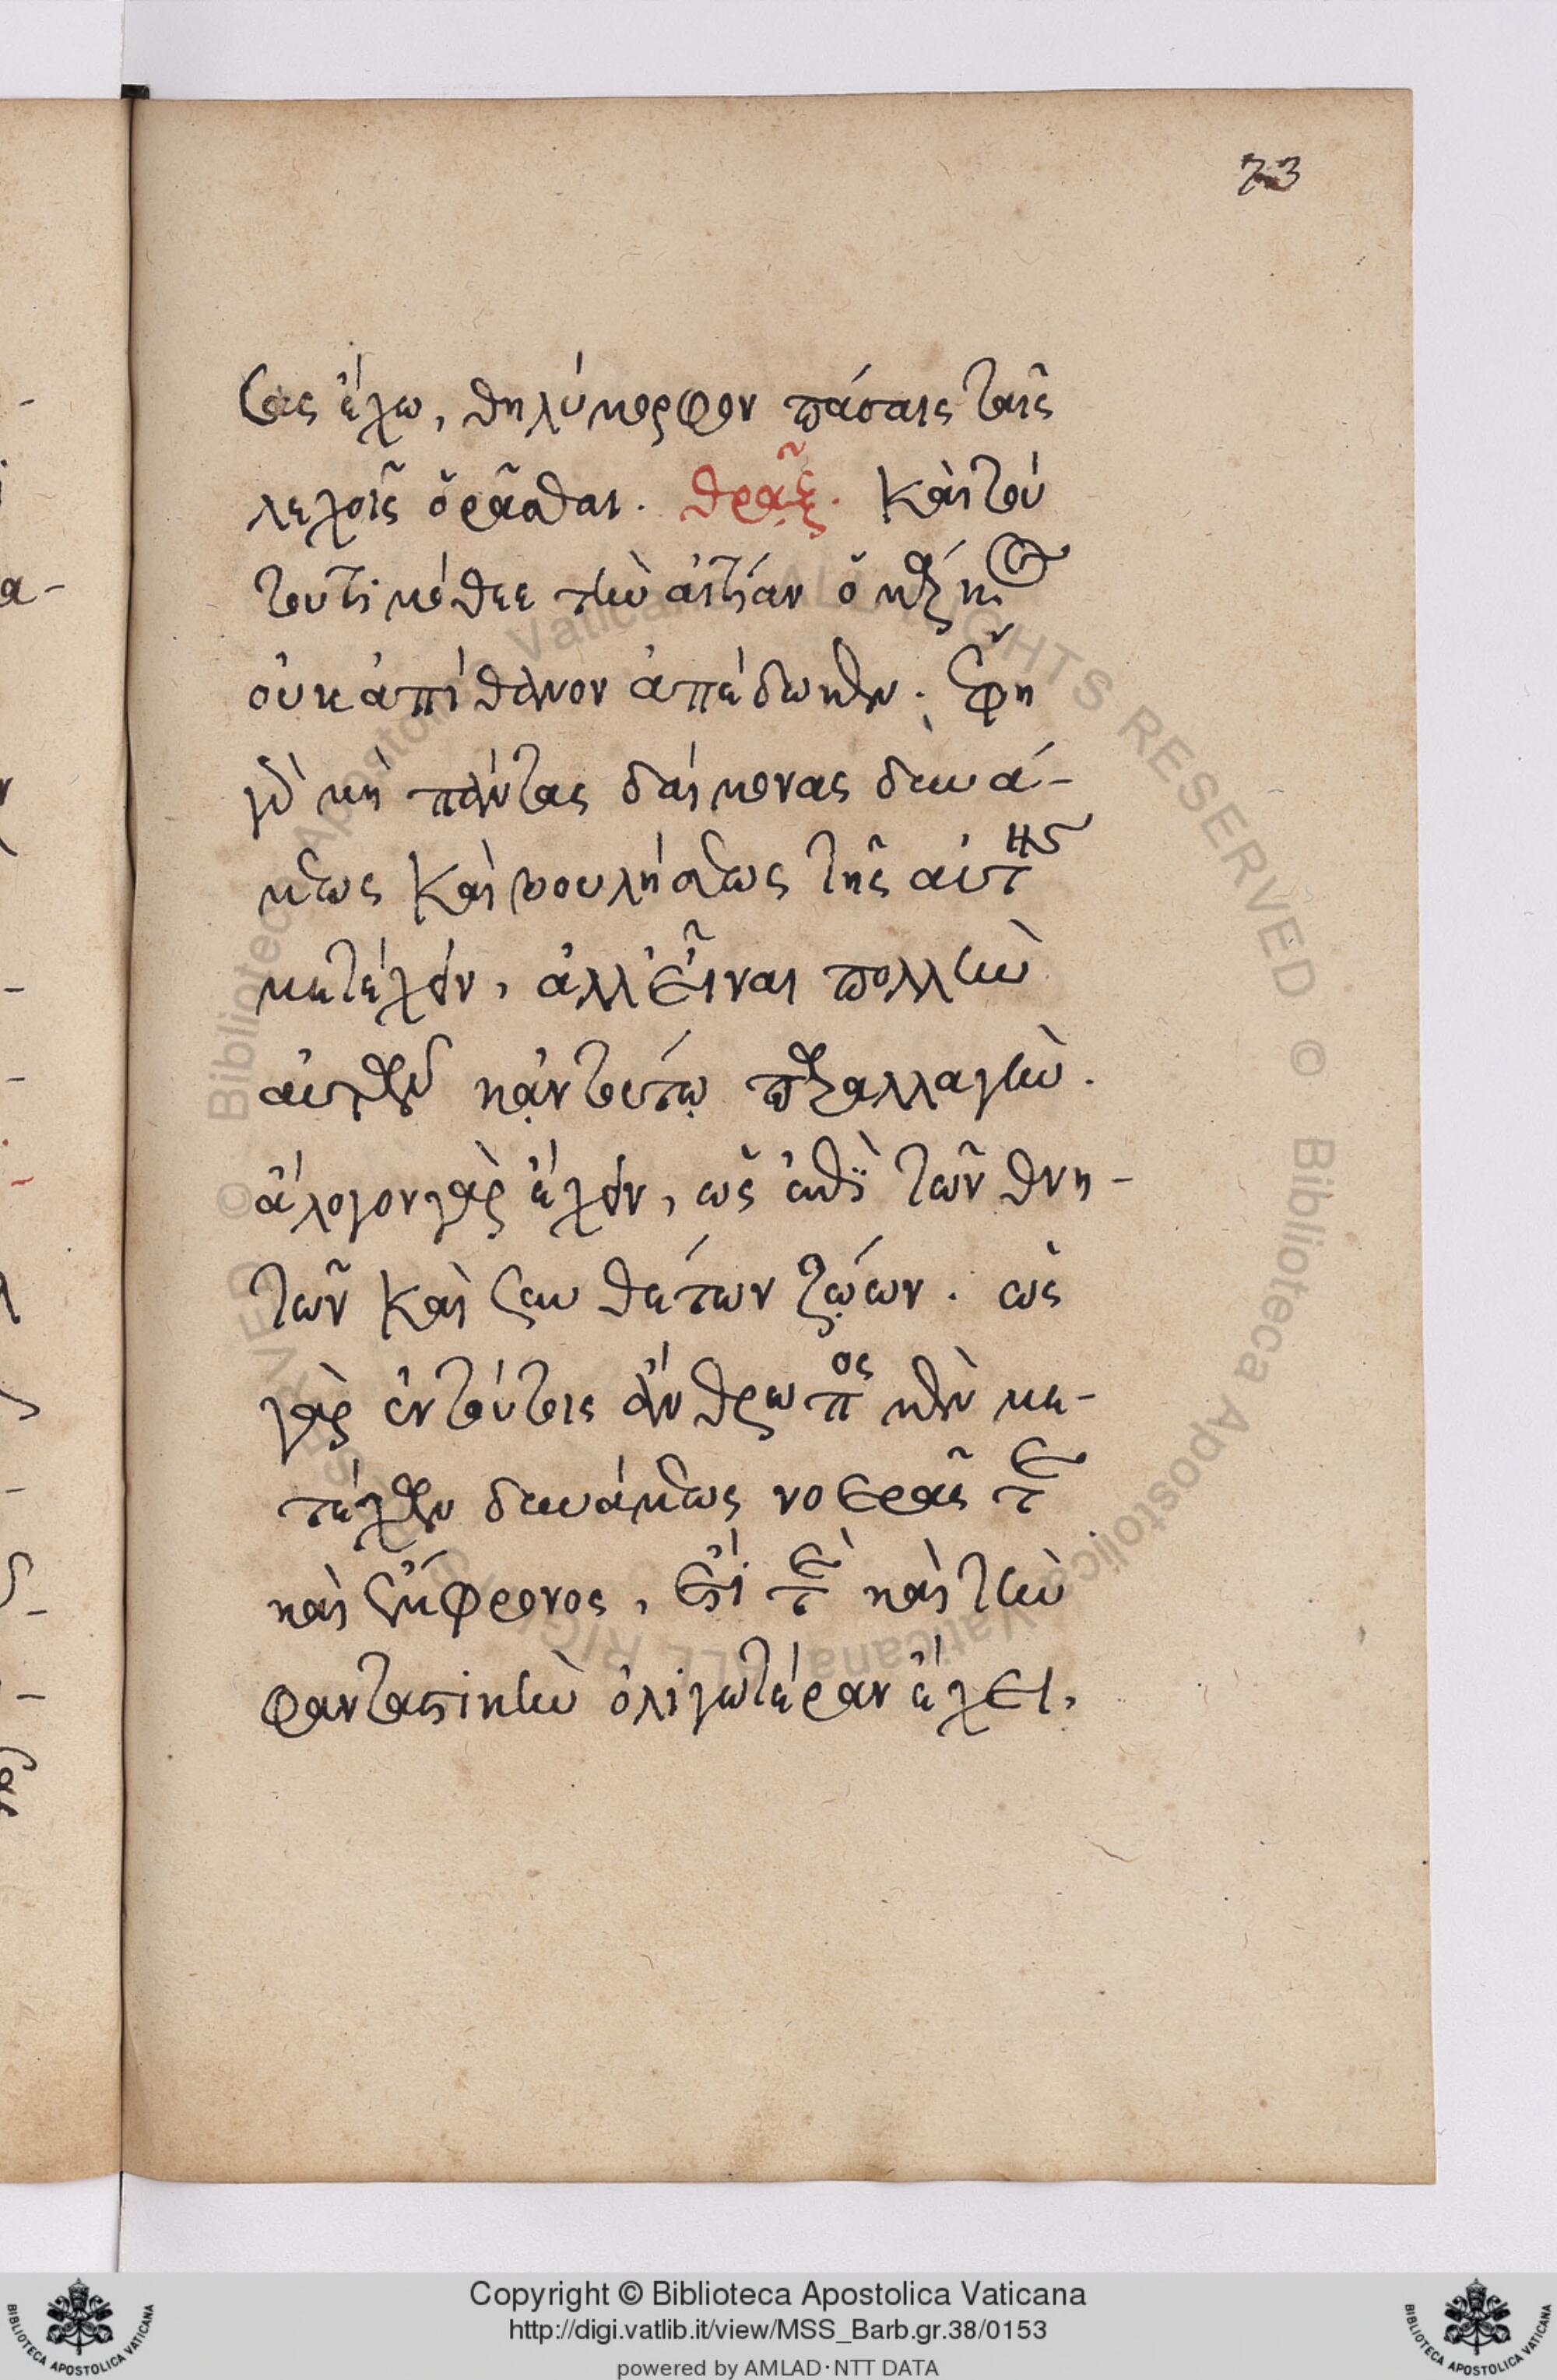 73
σας ἔχω, θηλύμορφον πάσαις ταῖς
λεχοῖς ὁρᾶσθαι. θρᾷξ. Καὶ τού
τουτὶ Τιμόθεε τὴν αἰτίαν ὁ μάρκος
οὐκ ἀπίθανον ἀπέδωκεν. ἔφη
γὰρ μὴ πάντας δαίμονας δυνά-
μεως καὶ βουλήσεως τῆς αὐτῆς
μετέχειν, ἀλλ' εἶναι πολλὴν
αὐτῶν κἀν τούτῳ παραλλαγήν.
ἄλογον γὰρ ἔχειν, ὡς ἐπὶ τῶν θνη-
τῶν καὶ συνθέτων ζῴων. ὡς
γὰρ ἐν τούτοις ἄνθρωπος μὲν με-
τέχων δυνάμεως νοερᾶς τε
καὶ ἔμφρονος, ἔτι τὲ καὶ τὴν
φανταστικὴν ὁλικωτέραν ἔχει,
Copyright © Biblioteca Apostolica Vaticana
http://digi.vatlib.it/view/MSS_Barb.gr.38/0153
powered by AMLAD·NTT DATA